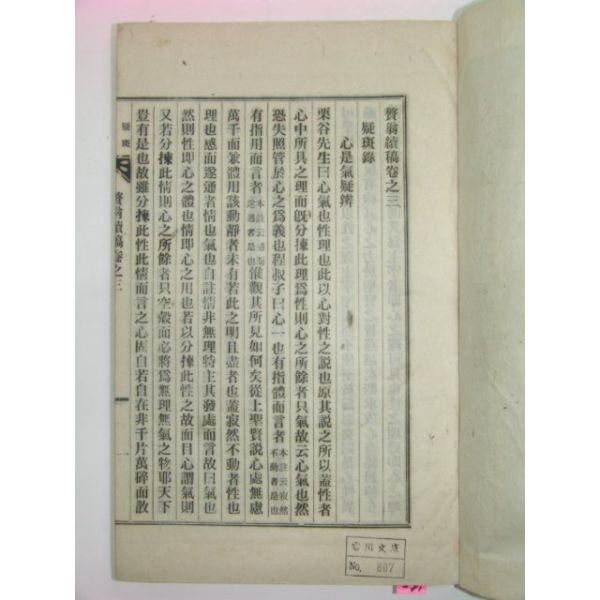 贅翁續稿卷之三
疑斑錄
心是氣疑辨
栗谷先生曰心氣也性理也此以心對性之說也原其說之所以蓋性者
心中所具之理而旣分揀此理爲性則心之所餘者只氣故云心氣也然
恐失照管於心之爲義也程叔子曰心一也有指體而言者本註云寂然不動者是也
有指用而言者本註云感而遂通者是也惟觀其所見如何矣從上聖賢說心處無慮
萬千而兼體用該動靜者未有若此之明且盡者也蓋寂然不動者性也
理也感而遂通者情也氣也自註情非無理特主其發處而言故曰氣也
然則性卽心之體也情卽心之用也若以分揀此性之故而目心謂氣則
又若分揀此情則心之所餘者只空殼而必將爲無理無氣之物耶天下
豈有是也故雖分揀此性此情而言之心固自若自在非千片萬碎而散
疑斑
贅翁續稿卷之三
一
文庫
No. 807